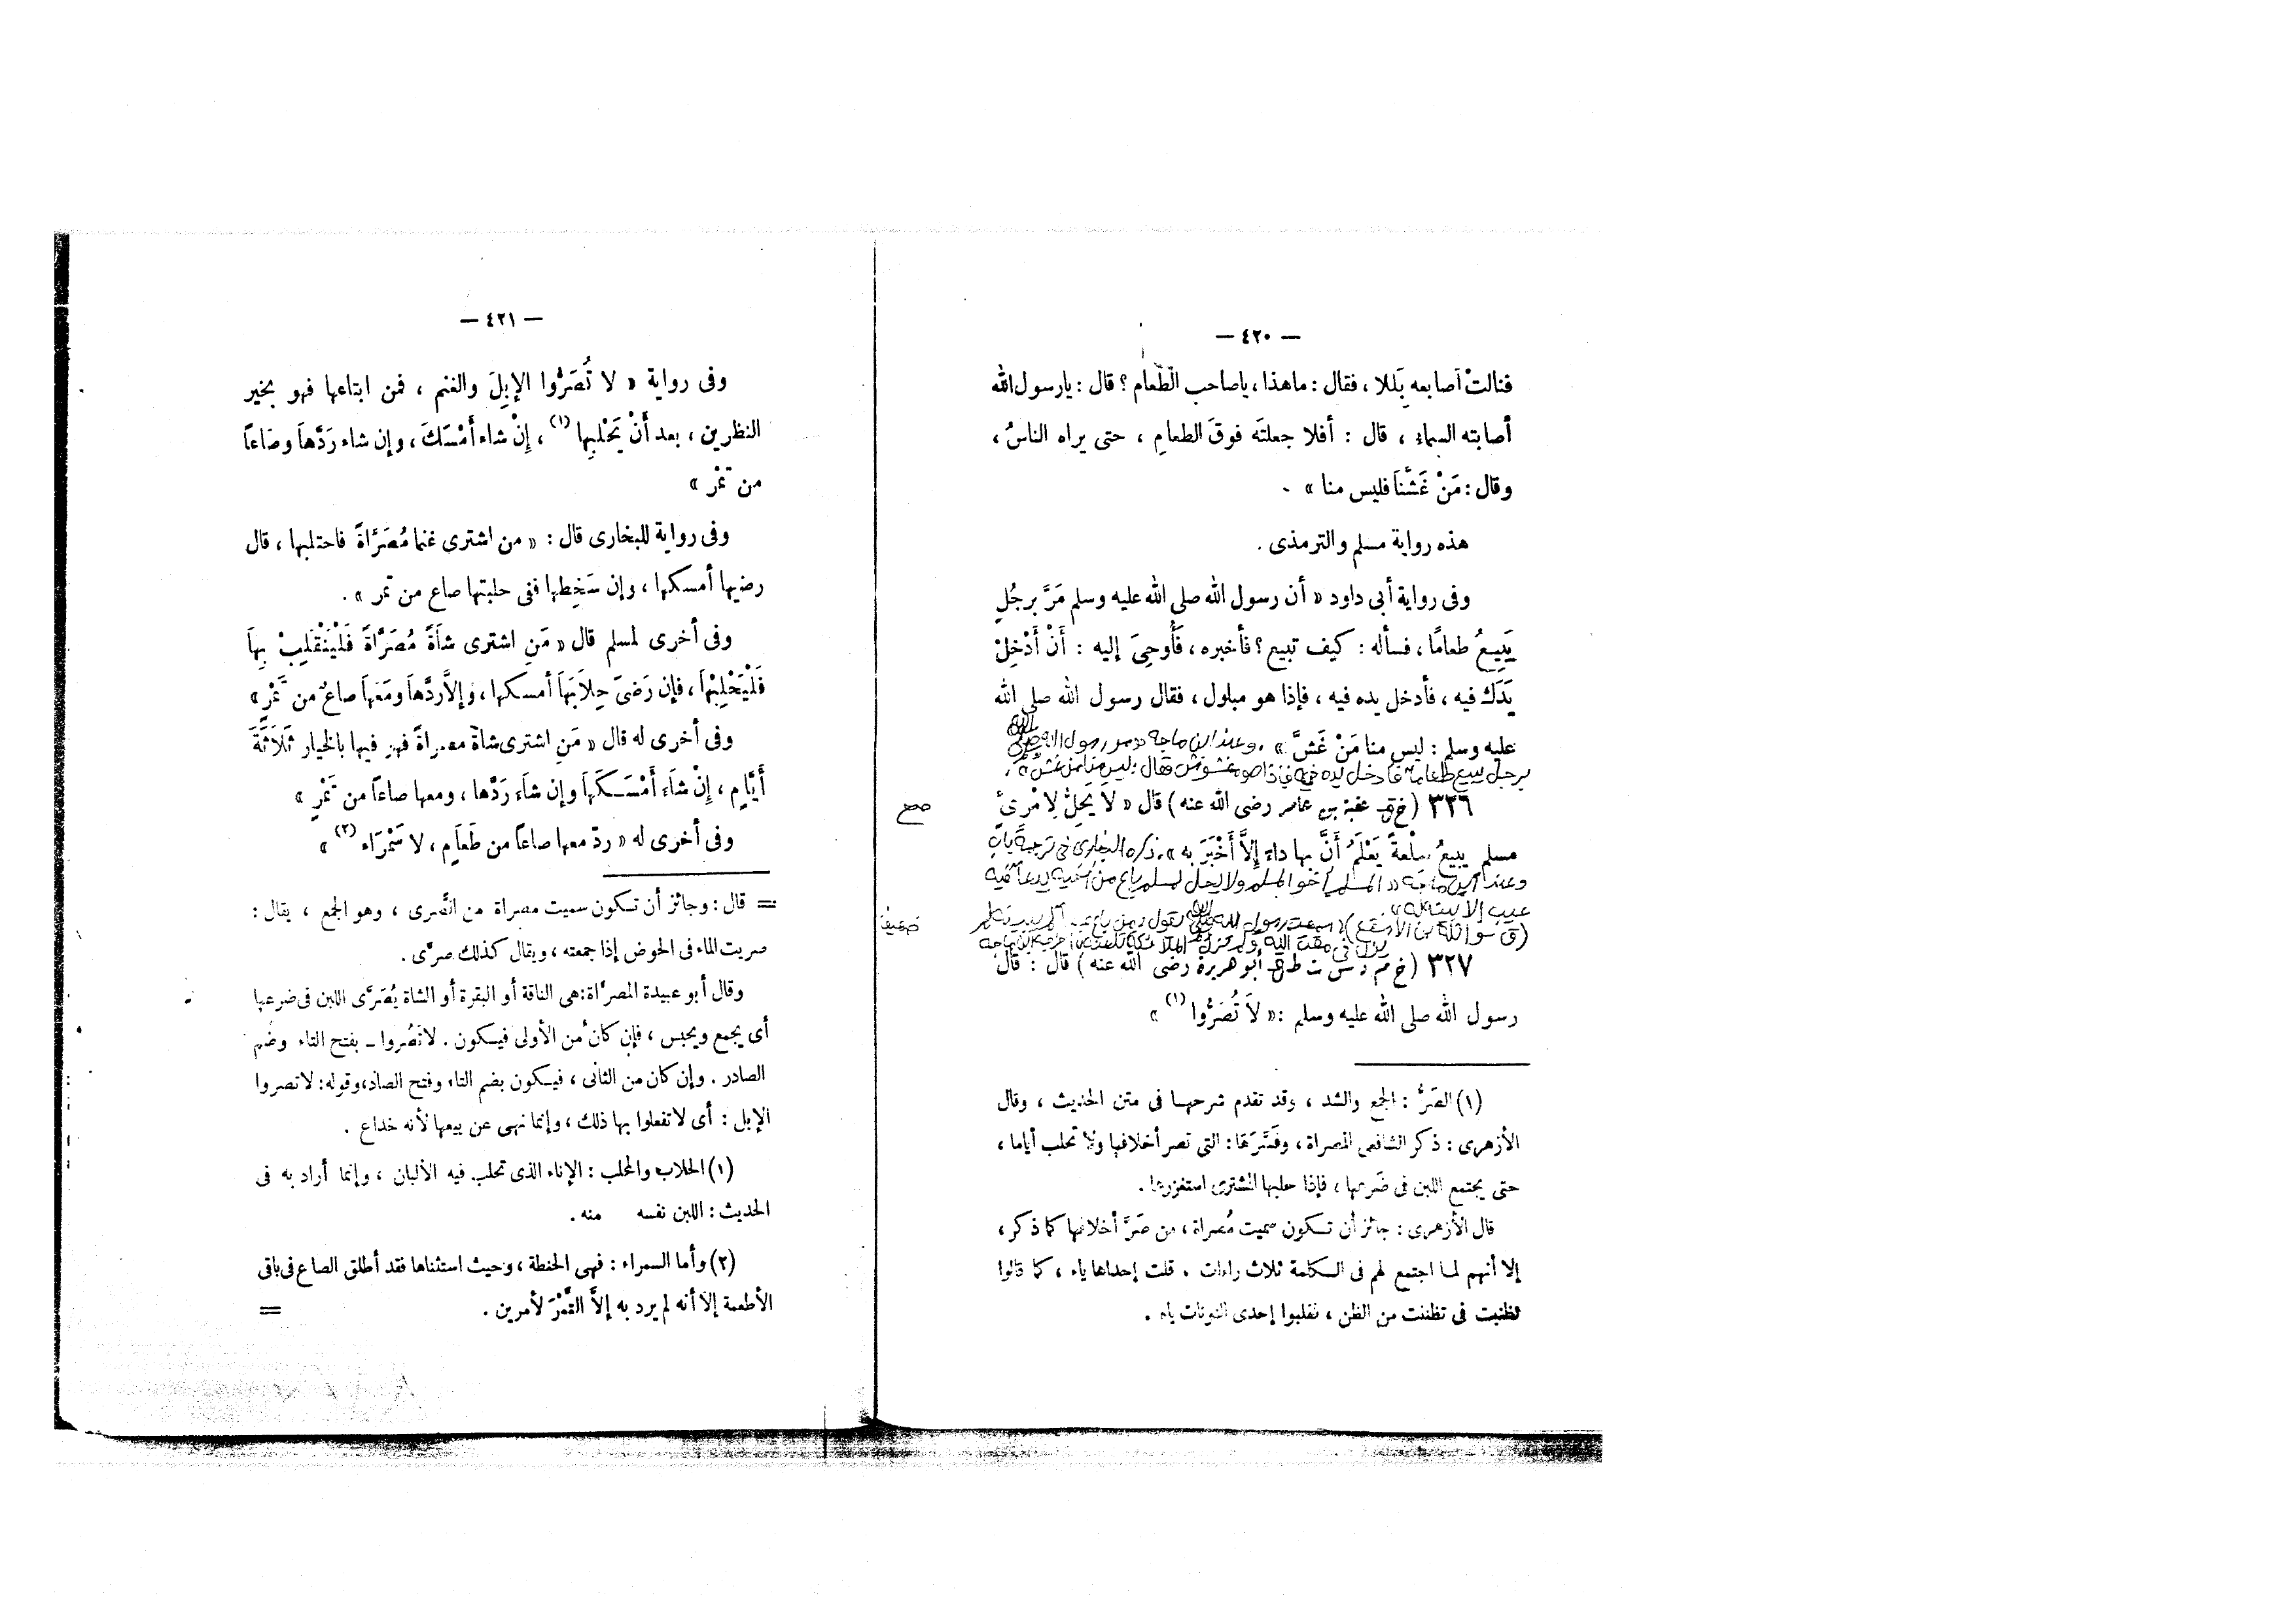 — ٤٢٠ —
فنالتْ أصابعه بَللا ، فقال : ماهذا ، ياصاحب الطّعام ؟ قال : يارسول الله
أصابته السماء ، قال : أفلا جعلتَه فوقَ الطعامِ ، حتى يراه الناسُ ،
وقال : مَنْ غَشَّنَا فليس منا » .
هذه رواية مسلم والترمذى .
وفى رواية أبى داود « أن رسول الله صلى الله عليه وسلم مَرَّ برجُلٍ
يَبِيعُ طعامًا ، فسأله : كيف تبيع ؟ فأخبره ، فَأُوحِىَ إليه : أَنْ أَدْخِلْ
يَدَك فيه ، فأدخل يده فيه ، فإذا هو مبلول ، فقال رسول الله صلى الله
عليه وسلم : ليس منا مَنْ غَشَّ » . وعند ابن ماجه « مر رسول الله ﷺ
برجل يبيع طعاما فأدخل يده فيه فإذا هو مغشوش فقال : ليس منا من غش » .
٣٢٦ ( خ ق عقبة بن عامر رضى الله عنه ) قال « لاَ يَحِلُّ لِامْرِئٍ
صحيح
مسلم يبيعُ سِلْعةً يَعْلَمُ أَنَّ بها داءً إِلاَّ أَخْبَرَ به » . ذكره البخارى فى ترجمة باب
وعند ابن ماجه « المسلم أخو المسلم ولا يحل لمسلم باع من أخيه بيعا فيه
عيب إلا بينه له »
( ق واثلة بن الأسقع ) « سمعت رسول الله ﷺ يقول : من باع عيبا لم يبينه لم
ضعيف
يزل فى مقت الله ولم تزل الملائكة تلعنه » أخرجه ابن ماجه
٣٢٧ ( خ م د س ت ط ق أبو هريرة رضى الله عنه ) قال : قال
رسول الله صلى الله عليه وسلم : « لاَ تُصَرُّوا (١) »
(١) الصَرُّ : الجمع والشد ، وقد تقدم شرحهـا فى متن الحديث ، وقال
الأزهرى : ذكر الشافعى المصراة ، وفَسَّرَها : التى تصر أخلافها ولا تحلب أياما ،
حتى يجتمع اللبن فى ضَرعها ، فإذا حلبها المشترى استغزرها .
قال الأزهرى : جائز أن تكون سميت مُصراة ، من صَرَّ أخلافها كما ذكر ،
إلا أنهم لمـا اجتمع لهم فى الكلمة ثلاث راءات . قلت إحداها ياء ، كما قالوا
تظنيت فى تظننت من الظن ، فقلبوا إحدى النونات ياء .
— ٤٢١ —
وفى رواية « لا تُصَرُّوا الإبِلَ والغنم ، فمن ابتاعها فهو بخير
النظرين ، بعد أَنْ يَحْلبِها (١) ، إِنْ شاء أَمْسَكَ ، وإن شاء رَدَّهاَ وصَاعاً
من تمْر »
وفى رواية للبخارى قال : « من اشترى غنما مُصَرَّاةً فاحتلبها ، قال
رضيها أمسكها ، وإن سَخِطها ففى حلبتها صاع من تمر » .
وفى أخرى لمسلم قال « مَنِ اشترى شاَةً مُصَرَّاةً فَلْيَنْقَلِبْ بِهاَ
فَلْيَحْلِبْهاَ ، فإن رَضىَ حِلاَبَهاَ أمسكها ، وَإلاَّ ردَّهاَ ومَعَهاَ صاعٌ من تَمْرٍ »
وفى أخرى له قال « مَنِ اشترى شاةً مصراةً فهو فيها بالخيار ثَلاَثَةَ
أَيَّامٍ ، إِنْ شاَءَ أَمْسَـكَهاَ وإن شاَءَ رَدَّها ، ومعها صاعاً من تَمْرٍ »
وفى أخرى له « ردّ معها صاعًا من طَعَامٍ ، لا سَمْرَاء (٢) »
= قال : وجائز أن تكون سميت مصراة من الصَّرى ، وهو الجمع ، يقال :
صريت الماء فى الحوض إذا جمعته ، ويقال كذلك صرَّى .
وقال أبو عبيدة المصرَّاة : هى الناقة أو البقرة أو الشاة يُصَرَّى اللبن فى ضرعها
أى يجمع ويحبس ، فإن كان من الأولى فيـكون . لا تَصُروا ـ بفتح التاء وضم
الصادر . وإن كان من الثانى ، فيـكون بضم التاء وفتح الصاد ، وقوله : لا تصروا
الإبل : أى لا تفعلوا بها ذلك ، وإنما نهى عن بيعها لأنه خداع .
(١) الحلاب والمحلب : الإناء الذى تحلب فيه الألبان ، وإنما أراد به فى
الحديث : اللبن نفسه منه .
(٢) وأما السمراء : فهى الحنطة ، وحيث استثناها فقد أطلق الصاع فى باقى
الأطعمة إلا أنه لم يرد به إلاَّ التَّمْرَ لأمرين . =